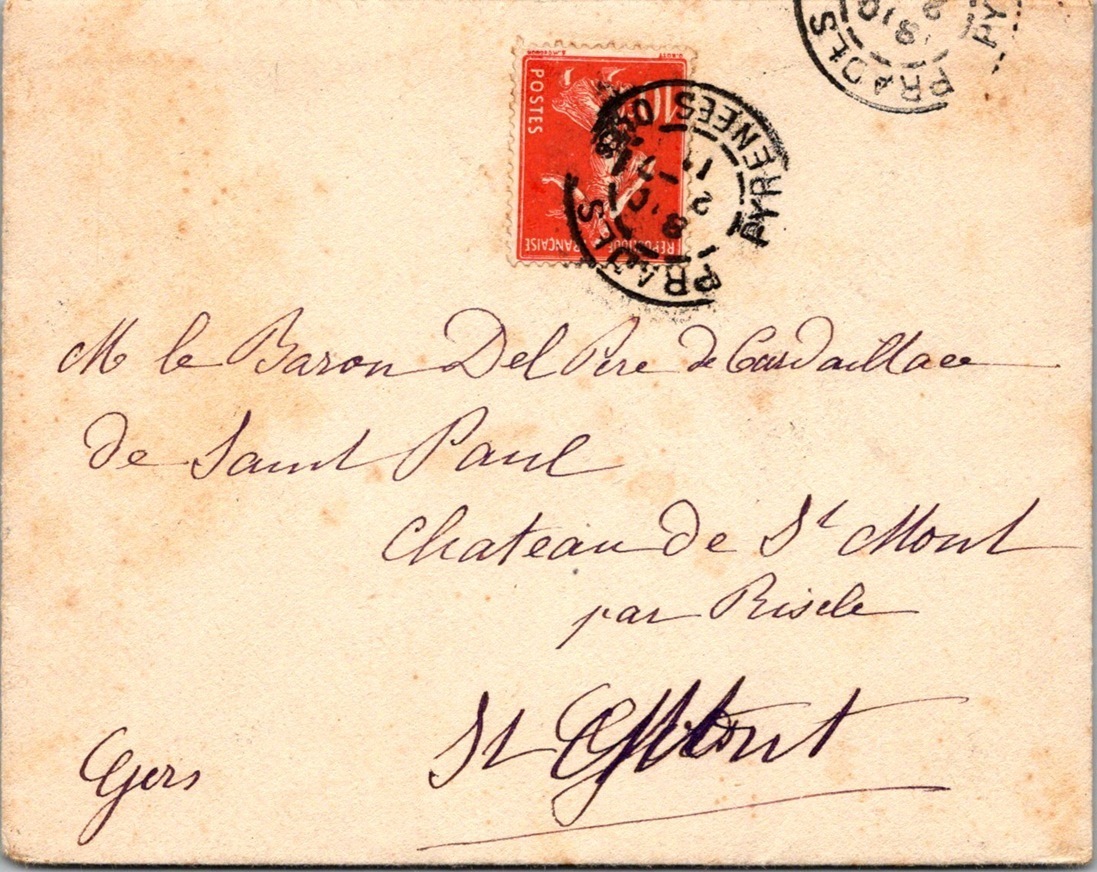 PRADES
PY
10
POSTES
REPUBLIQUE FRANCAISE
PRADES
PYRENEES
M le Baron Del Pere de Cardaillace
de Saint Paul
Chateau de St Mont
par Riscle
St Mont
Gers